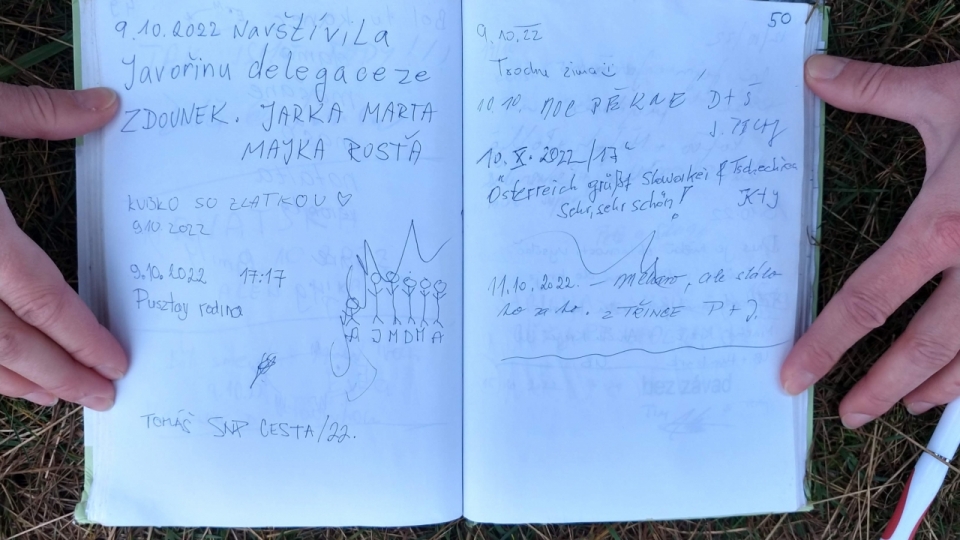 9.10.2022 Navštívila
Javořinu delegace ze
ZDOUNEK. JARKA MARTA
MAJKA ROSŤA
KUBKO SO ZLATKOU ♡
9.10.2022
9.10.2022 17:17
Pusztay rodina
A J M D M A
TOMÁŠ SNP CESTA/22.
50
9.10.22
Trochu zima
10.10. MOC PĚKNÉ D+Š
10.X.2022/17
Österreich grüßt Slowakei & Tschechien
Sehr, sehr schön! K+J
11.10.2022. – Mlhavo, ale stálo
to za to. z TŘINCE P+J.
bez závad